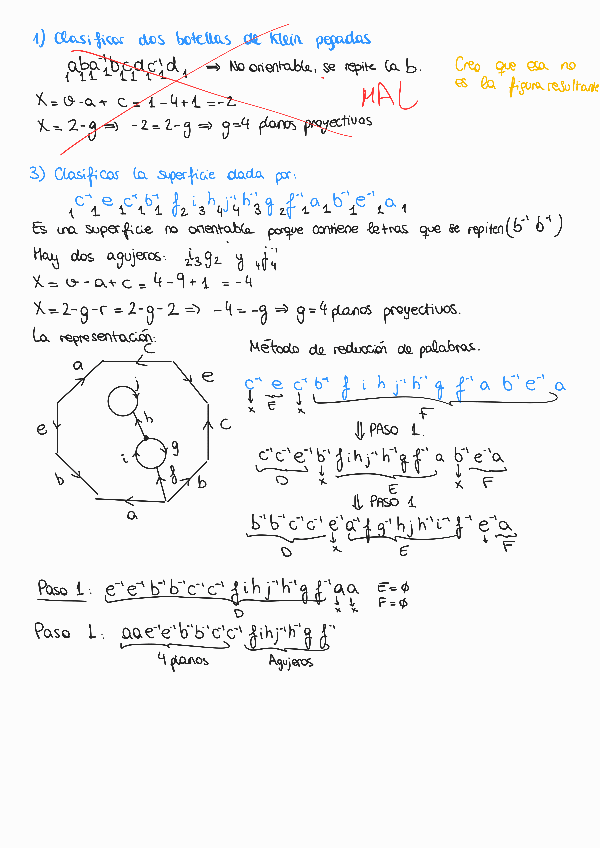 1) Clasificar dos botellas de Klein pegadas
aba⁻¹bcdc⁻¹d → No orientable, se repite la b.
1 1 1 1 1 1 1 1 1
Creo que esa no
es la figura resultante
X = v - a + c = 1 - 4 + 1 = -2
MAL
X = 2 - g ⇒ -2 = 2 - g ⇒ g = 4 planos proyectivos
3) Clasificar la superficie dada por:
c⁻¹ e c⁻¹ b⁻¹ f i h j⁻¹ h⁻¹ g f⁻¹ a b⁻¹ e⁻¹ a
1 1 1 1 1 2 3 4 4 3 2 1 1 1 1 1
Es una superficie no orientable porque contiene letras que se repiten (b⁻¹ b⁻¹)
Hay dos agujeros: ₂i₃g₂ y ₄j⁻¹₄
X = v - a + c = 4 - 9 + 1 = -4
X = 2 - g - r = 2 - g - 2 ⇒ -4 = -g ⇒ g = 4 planos proyectivos.
La representación:
Método de reducción de palabras.
c
a
e
e
c
b
b
a
j
h
g
i
f
c⁻¹ e c⁻¹ b⁻¹ f i h j⁻¹ h⁻¹ g f⁻¹ a b⁻¹ e⁻¹ a
x E x F
⇓ PASO 1.
c⁻¹c⁻¹e⁻¹b⁻¹ f i h j⁻¹ h⁻¹ g f⁻¹ a b⁻¹ e⁻¹ a
D x E x F
⇓ PASO 1
b⁻¹b⁻¹c⁻¹c⁻¹ e⁻¹ a⁻¹ f g⁻¹ h j h⁻¹ i⁻¹ f⁻¹ e⁻¹ a
D x E F
Paso 1: e⁻¹e⁻¹b⁻¹b⁻¹c⁻¹c⁻¹ f i h j⁻¹ h⁻¹ g f⁻¹ a a E = ∅
D x x F = ∅
Paso 1: a a e⁻¹e⁻¹b⁻¹b⁻¹c⁻¹c⁻¹ f i h j⁻¹ h⁻¹ g f⁻¹
4 planos Agujeros